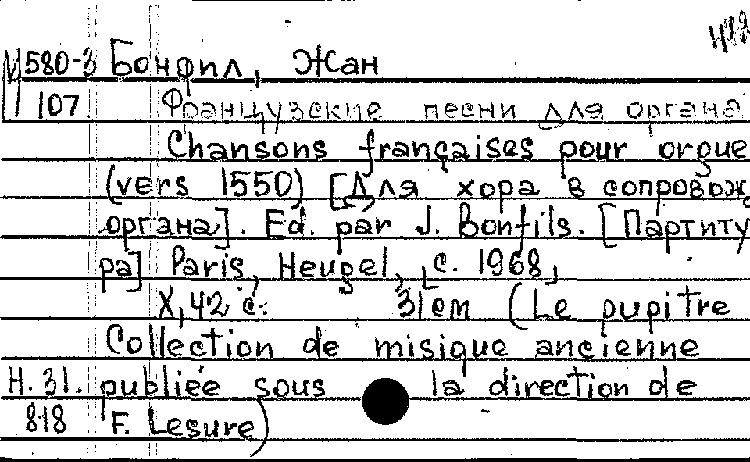 М580-3 Бонфил, Жан
107 Французские песни для органа
Chansons françaises pour orgue
(vers 1550) [Для хора в сопровож
органа]. Ed. par J. Bonfils. [Партиту
ра] Paris, Heugel, [c. 1968]
X, 42 с. 31 cm (Le pupitre
Collection de misique ancienne
H. 31. publiée sous la direction de
818 F. Lesure)